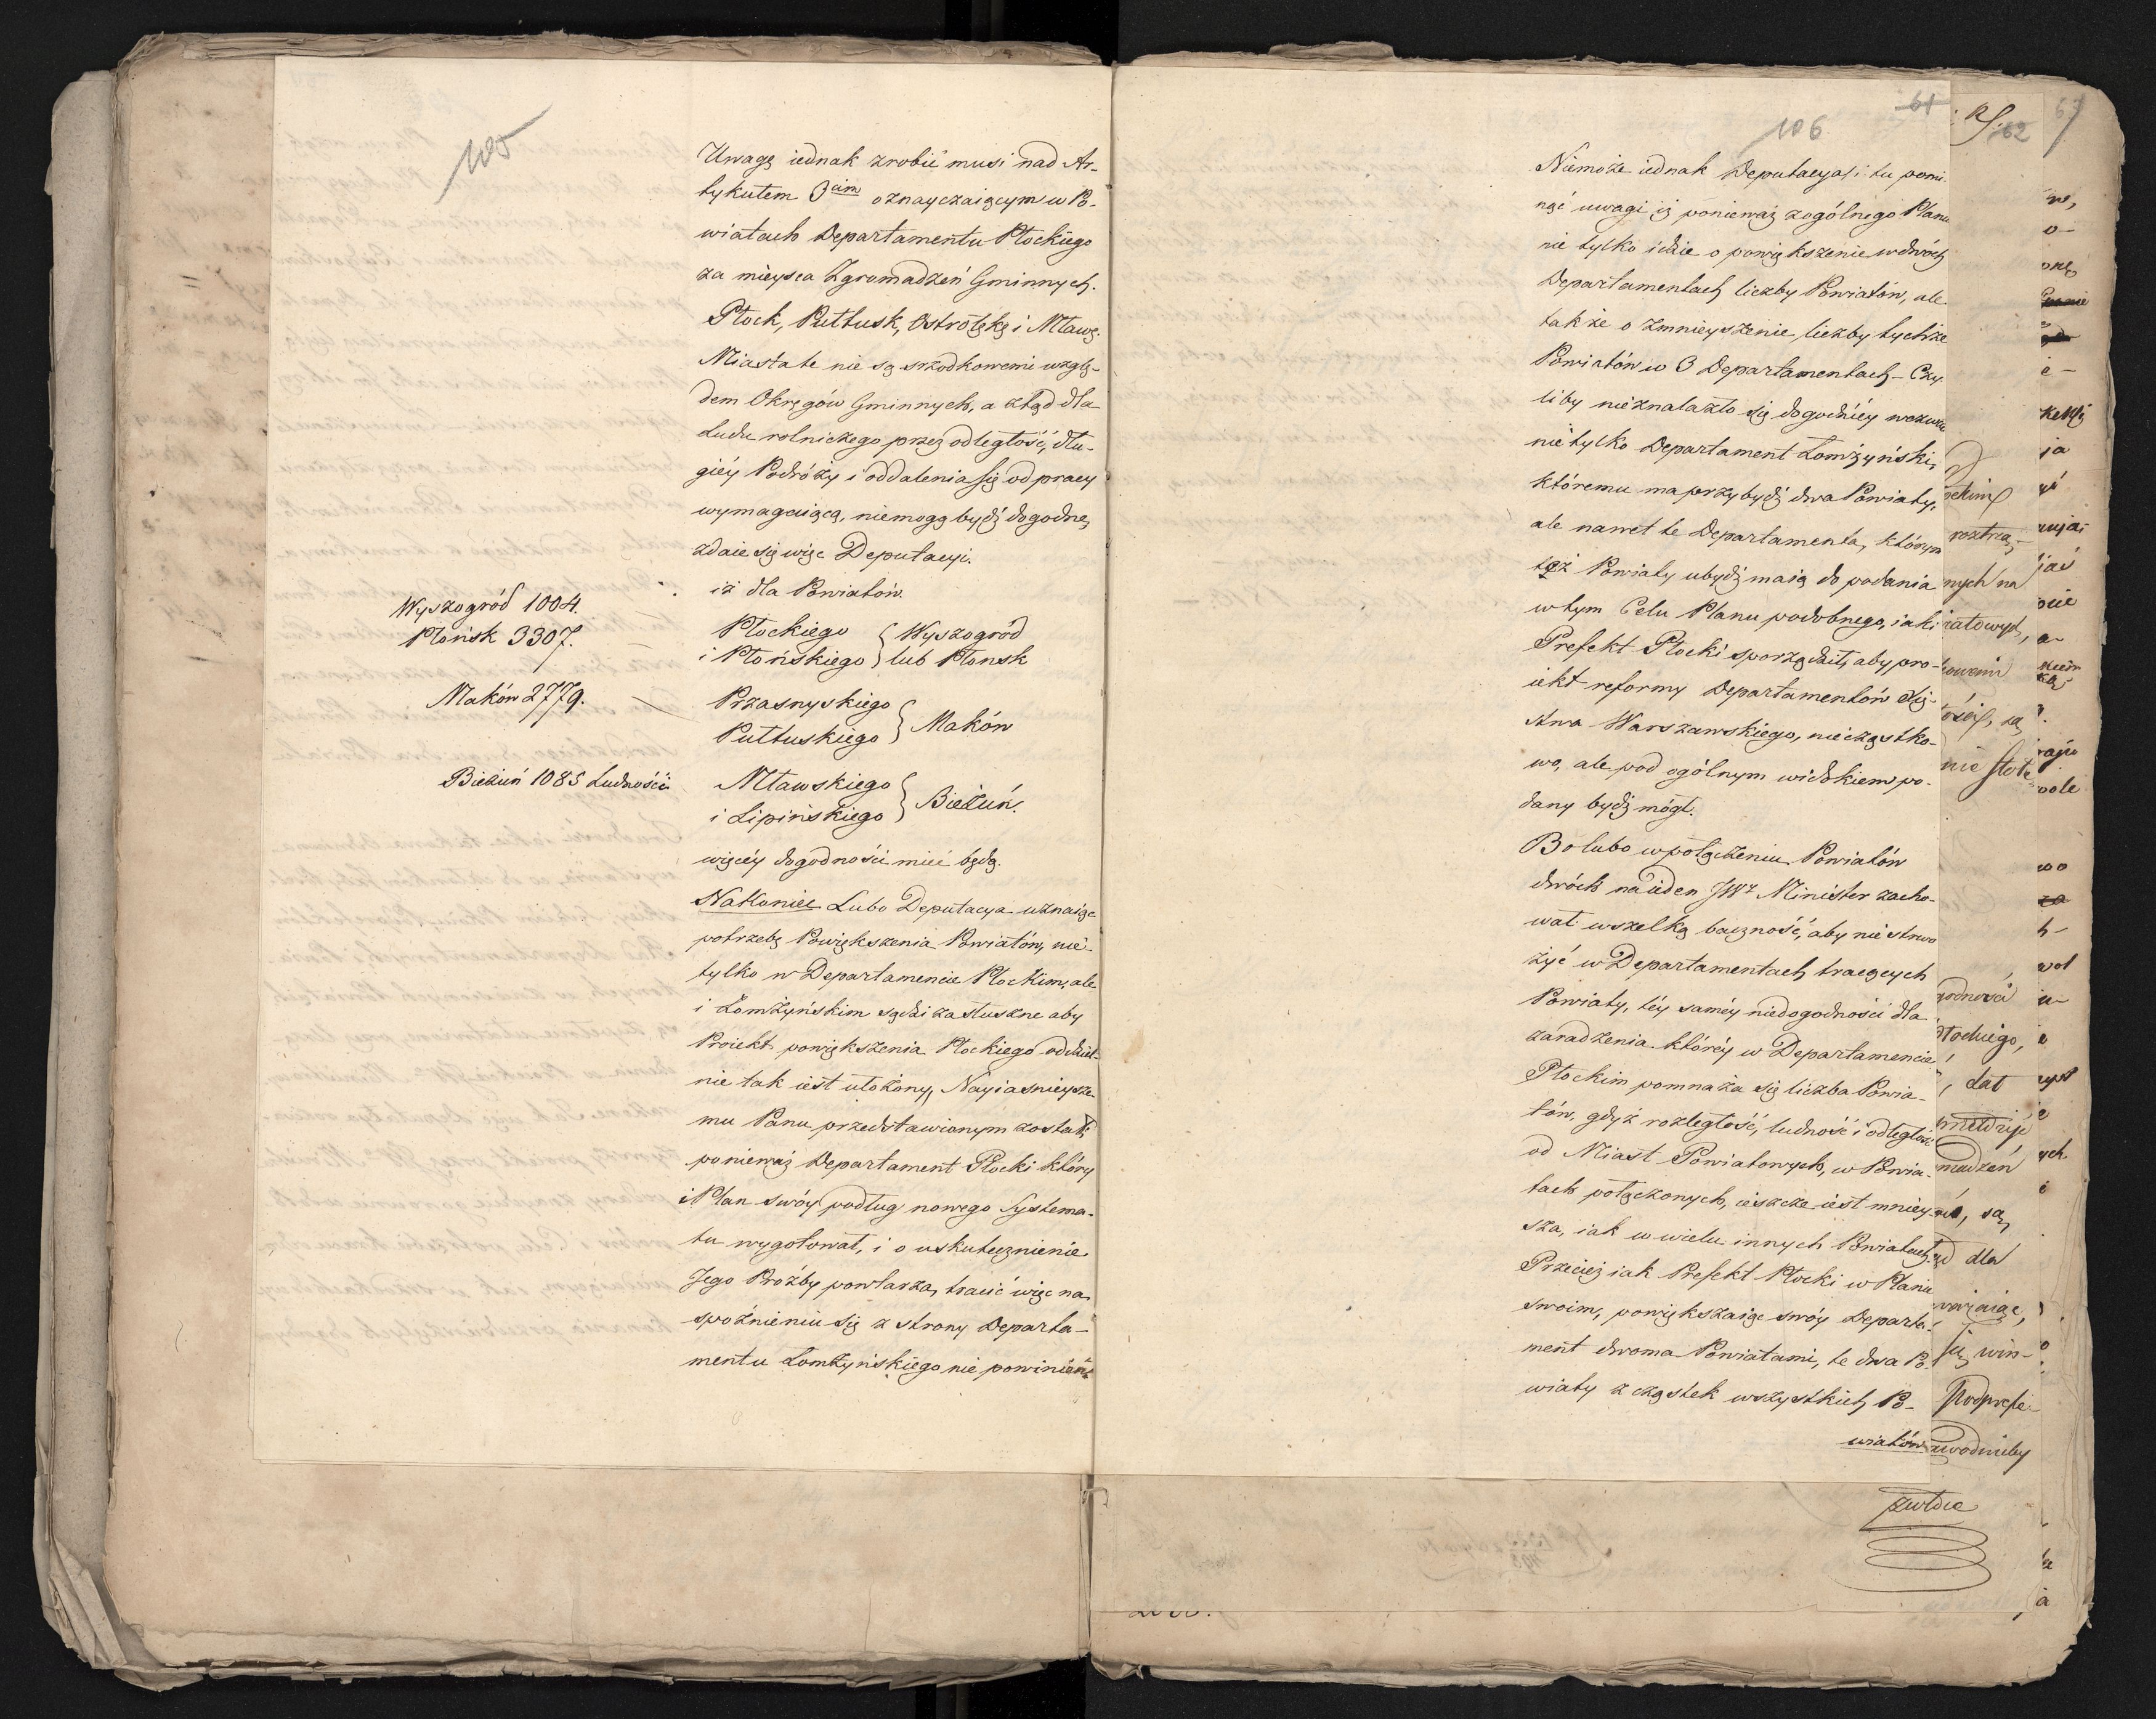 105
Uwagę iednak zrobić musi nad Ar-
tykułem 3cim oznayczaiącym w Po-
wiatach Departamentu Płockiego
za mieysca Zgromadzeń Gminnych.
Płock, Pułtusk, Ostrołękę i Mławę.
Miasta te nie są srzodkowemi wzglę-
dem Okręgów Gminnych, a ztąd dla
Ludu rolniczego przez odległość, dłu-
giéy Podróży i oddalenia się od pracy
wymagaiącą, niemogą bydź dogodne,
zdaie się więc Deputacyi.
iż dla Powiatów.
Wyszogród 1004.
Płońsk 3307.
Płockiego } Wyszogród
i Płońskiego } lub Płonsk
Maków 2779.
Przasnyskiego
Pułtuskiego } Maków
Bieżuń 1085 Ludności
Mławskiego
i Lipińskiego } Bieżuń.
więcéy dogodności mieć będą.
Nakoniec Lubo Deputacya uznaiąc
potrzebę Powiększenia Powiatów, nie-
tylko w Departamencie Płockim, ale
i Łomżyńskim sądzi za słuszne aby
Proiekt powiększenia Płockiego oddziel-
nie tak iest ułożony, Nayiasnieysze-
mu Panu przedstawionym został,
ponieważ Departament Płocki który
i Plan swóy podług nowego Systema-
tu wygotował, i o uskutecznienie
Jego Prożby powtarza, tracić więc na
spoźnieniu się z strony Departa-
mentu Łomżyńskiego nie powinien.
61
106
Niemoże iednak Deputacya i tu pomi-
nąć uwagi iż ponieważ z ogólnego Planu
nie tylko idzie o powiększenie w dwóch
Departamentach liczby Powiatów, ale
także o zmnieyszenie liczby tychże
Powiatów w 3 Departamentach - Czy-
liby nieznalazło się dogodniéy wezwać
nie tylko Departament Łomżyński,
któremu ma przybydź dwa Powiaty,
ale nawet te Departamenta, którym
też Powiaty ubydź maią do podania
w tym Celu Planu podobnego, iaki
Prefekt Płocki sporządził, aby pro-
iekt reformy Departamentów Xię-
stwa Warszawskiego, nieczęstko-
wo, ale pod ogólnym widokiem po-
dany bydź mógł.
Bo lubo w połączeniu Powiatów
dwóch na ieden JWż Minister zacho-
wał wszelką baczność, aby nie stwo
żyć w Departamentach tracących
Powiaty, téy saméy niedogodności dla
zaradzenia któréy w Departamencie
Płockim pomnaża się liczba Powia-
tów, gdyż rozległość, ludność i odległość
od Miast Powiatowych, w Powia-
tach połączonych, ieszcze iest mniey-
sza, iak w wielu innych Powiatach.
Przecież iak Prefekt Płocki w Planie
swoim, powiększaiąc swóy Departa-
ment dwoma Powiatami, te dwa Po-
wiaty z cząstek wszystkich Po-
wiatów
62
roztrzą-
nych na
nie
godności
dat
madzeń
są
dla
win-
Podprefe-